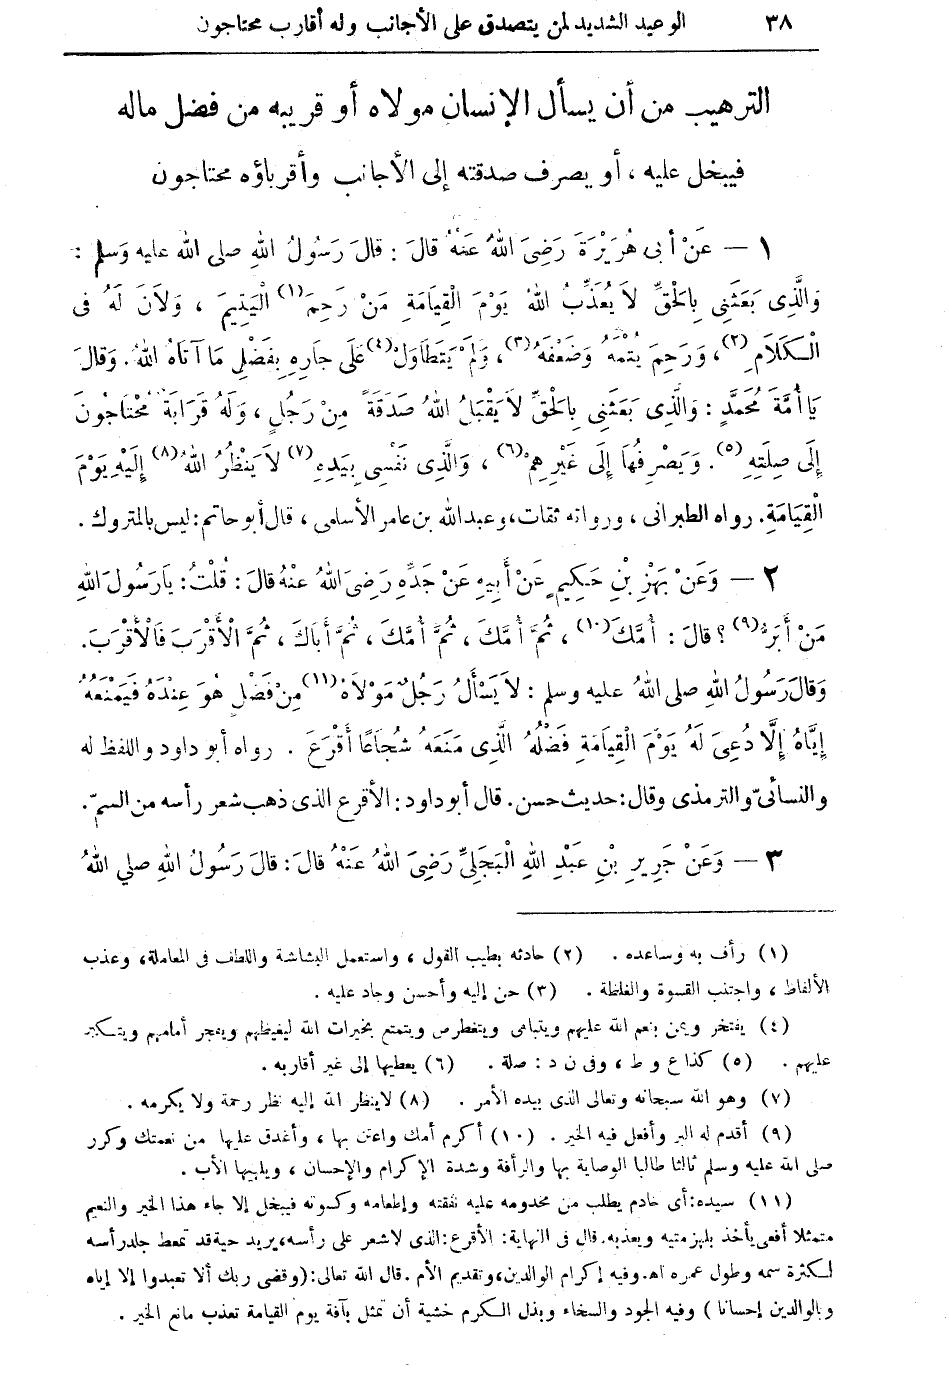 ٣٨ الوعيد الشديد لمن يتصدق على الأجانب وله أقارب محتاجون
الترهيب من أن يسأل الإنسان مولاه أو قريبه من فضل ماله
فيبخل عليه ، أو يصرف صدقته إلى الأجانب وأقرباؤه محتاجون
١ — عَنْ أَبِى هُرَيْرَةَ رَضِىَ اللهُ عَنْهُ قَالَ : قَالَ رَسُولُ اللهِ صلى الله عليه وَسلم :
وَالَّذِى بَعَثَنِى بِالْحَقِّ لَا يُعَذِّبُ اللهُ يَوْمَ الْقِيَامَةِ مَنْ رَحِمَ(١) الْيَتِيمَ ، وَلَانَ لَهُ فى
الْكَلَامِ(٢)، وَرَحِمَ يُتْمَهُ وَضَعْفَهُ(٣)، وَلَمْ يَتَطَاوَلْ(٤) عَلَى جَارِهِ بِفَضْلِ مَا آتَاهُ اللهُ. وَقَالَ
يَا أُمَّةَ مُحَمَّدٍ : وَالَّذِى بَعَثَنِى بِالْحَقِّ لَا يَقْبَلُ اللهُ صَدَقَةً مِنْ رَجُلٍ ، وَلَهُ قَرَابَةٌ مُحْتَاجُونَ
إِلَى صِلَتِهِ(٥). وَيَصْرِفُهَا إِلَى غَيْرِهِمْ(٦) ، وَالَّذِى نَفْسِى بِيَدِهِ(٧) لَا يَنْظُرُ اللهُ(٨) إِلَيْهِ يَوْمَ
الْقِيَامَةِ. رواه الطبرانى ، ورواته ثقات، وعبدالله بن عامر الأسلمى ، قال أبو حاتم: ليس بالمتروك .
٢ — وَعَنْ بَهْزِ بْنِ حَكِيمٍ عَنْ أَبِيهِ عَنْ جَدِّهِ رَضِىَ اللهُ عَنْهُ قَالَ : قُلْتُ: يَارَسُولَ اللهِ
مَنْ أَبَرُّ(٩) ؟ قالَ : أُمَّكَ(١٠) ، ثُمَّ أُمَّكَ ، ثُمَّ أُمَّكَ ، ثُمَّ أَبَاكَ ، ثُمَّ الْأَقْرَبَ فَالْأَقْرَبَ.
وَقَالَ رَسُولُ اللهِ صلى اللهُ عليه وسلم : لَا يَسْأَلُ رَجُلٌ مَوْلَاهُ(١١) مِنْ فَضْلٍ هُوَ عِنْدَهُ فَيَمْنَعُهُ
إِيَّاهُ إِلَّا دُعِىَ لَهُ يَوْمَ الْقِيَامَةِ فَضْلُهُ الَّذِى مَنَعَهُ شُجَاعًا أَقْرَعَ . رواه أبو داود واللفظ له
والنسائىّ والترمذى وقال: حديث حسن. قال أبو داود: الأقرع الذى ذهب شعر رأسه من السمّ.
٣ — وَعَنْ جَرِيرِ بْنِ عَبْدِ اللهِ الْبَجَلِيِّ رَضِىَ اللهُ عَنْهُ قَالَ: قَالَ رَسُولُ اللهِ صلي اللهُ
(١) رأف به وساعده . (٢) حادثه بطيب القول ، واستعمل البشاشة واللطف فى المعاملة، وعذب
الألفاظ ، واجتنب القسوة والغلظة . (٣) حن إليه وأحسن وجاد عليه .
(٤) يفتخر ويمن بنعم الله عليهم ويتباهى ويتغطرس ويتمتع بخيرات الله ليغيظهم ويفجر أمامهم ويتكبر
عليهم . (٥) كذا ع و ط ، وفى ن د : صلة . (٦) يعطيها إلى غير أقاربه .
(٧) وهو الله سبحانه وتعالى الذى بيده الأمر . (٨) لاينظر الله إليه نظر رحمة ولا يكرمه .
(٩) أقدم له البر وأفعل فيه الخير . (١٠) أكرم أمك واعتن بها ، وأغدق عليها من نعمتك وكرر
صلى الله عليه وسلم ثالثا طالبا الوصاية بها والرأفة وشدة الإكرام والإحسان ، ويليها الأب .
(١١) سيده: أى خادم يطلب من مخدومه عليه نفقته وإطعامه وكسوته فيبخل إلا جاء هذا الخير والنعيم
متمثلا أفعى يأخذ بلهزمتيه ويعذبه. قال فى النهاية: الأقرع: الذى لاشعر على رأسه، يريد حية قد تمعط جلد رأسه
لكثرة سمه وطول عمره اه. وفيه إكرام الوالدين، وتقديم الأم . قال الله تعالى: (وقضى ربك ألا تعبدوا إلا إياه
وبالوالدين إحسانا ) وفيه الجود والسخاء وبذل الكرم خشية أن تمثل بآفة يوم القيامة تعذب مانع الخير .